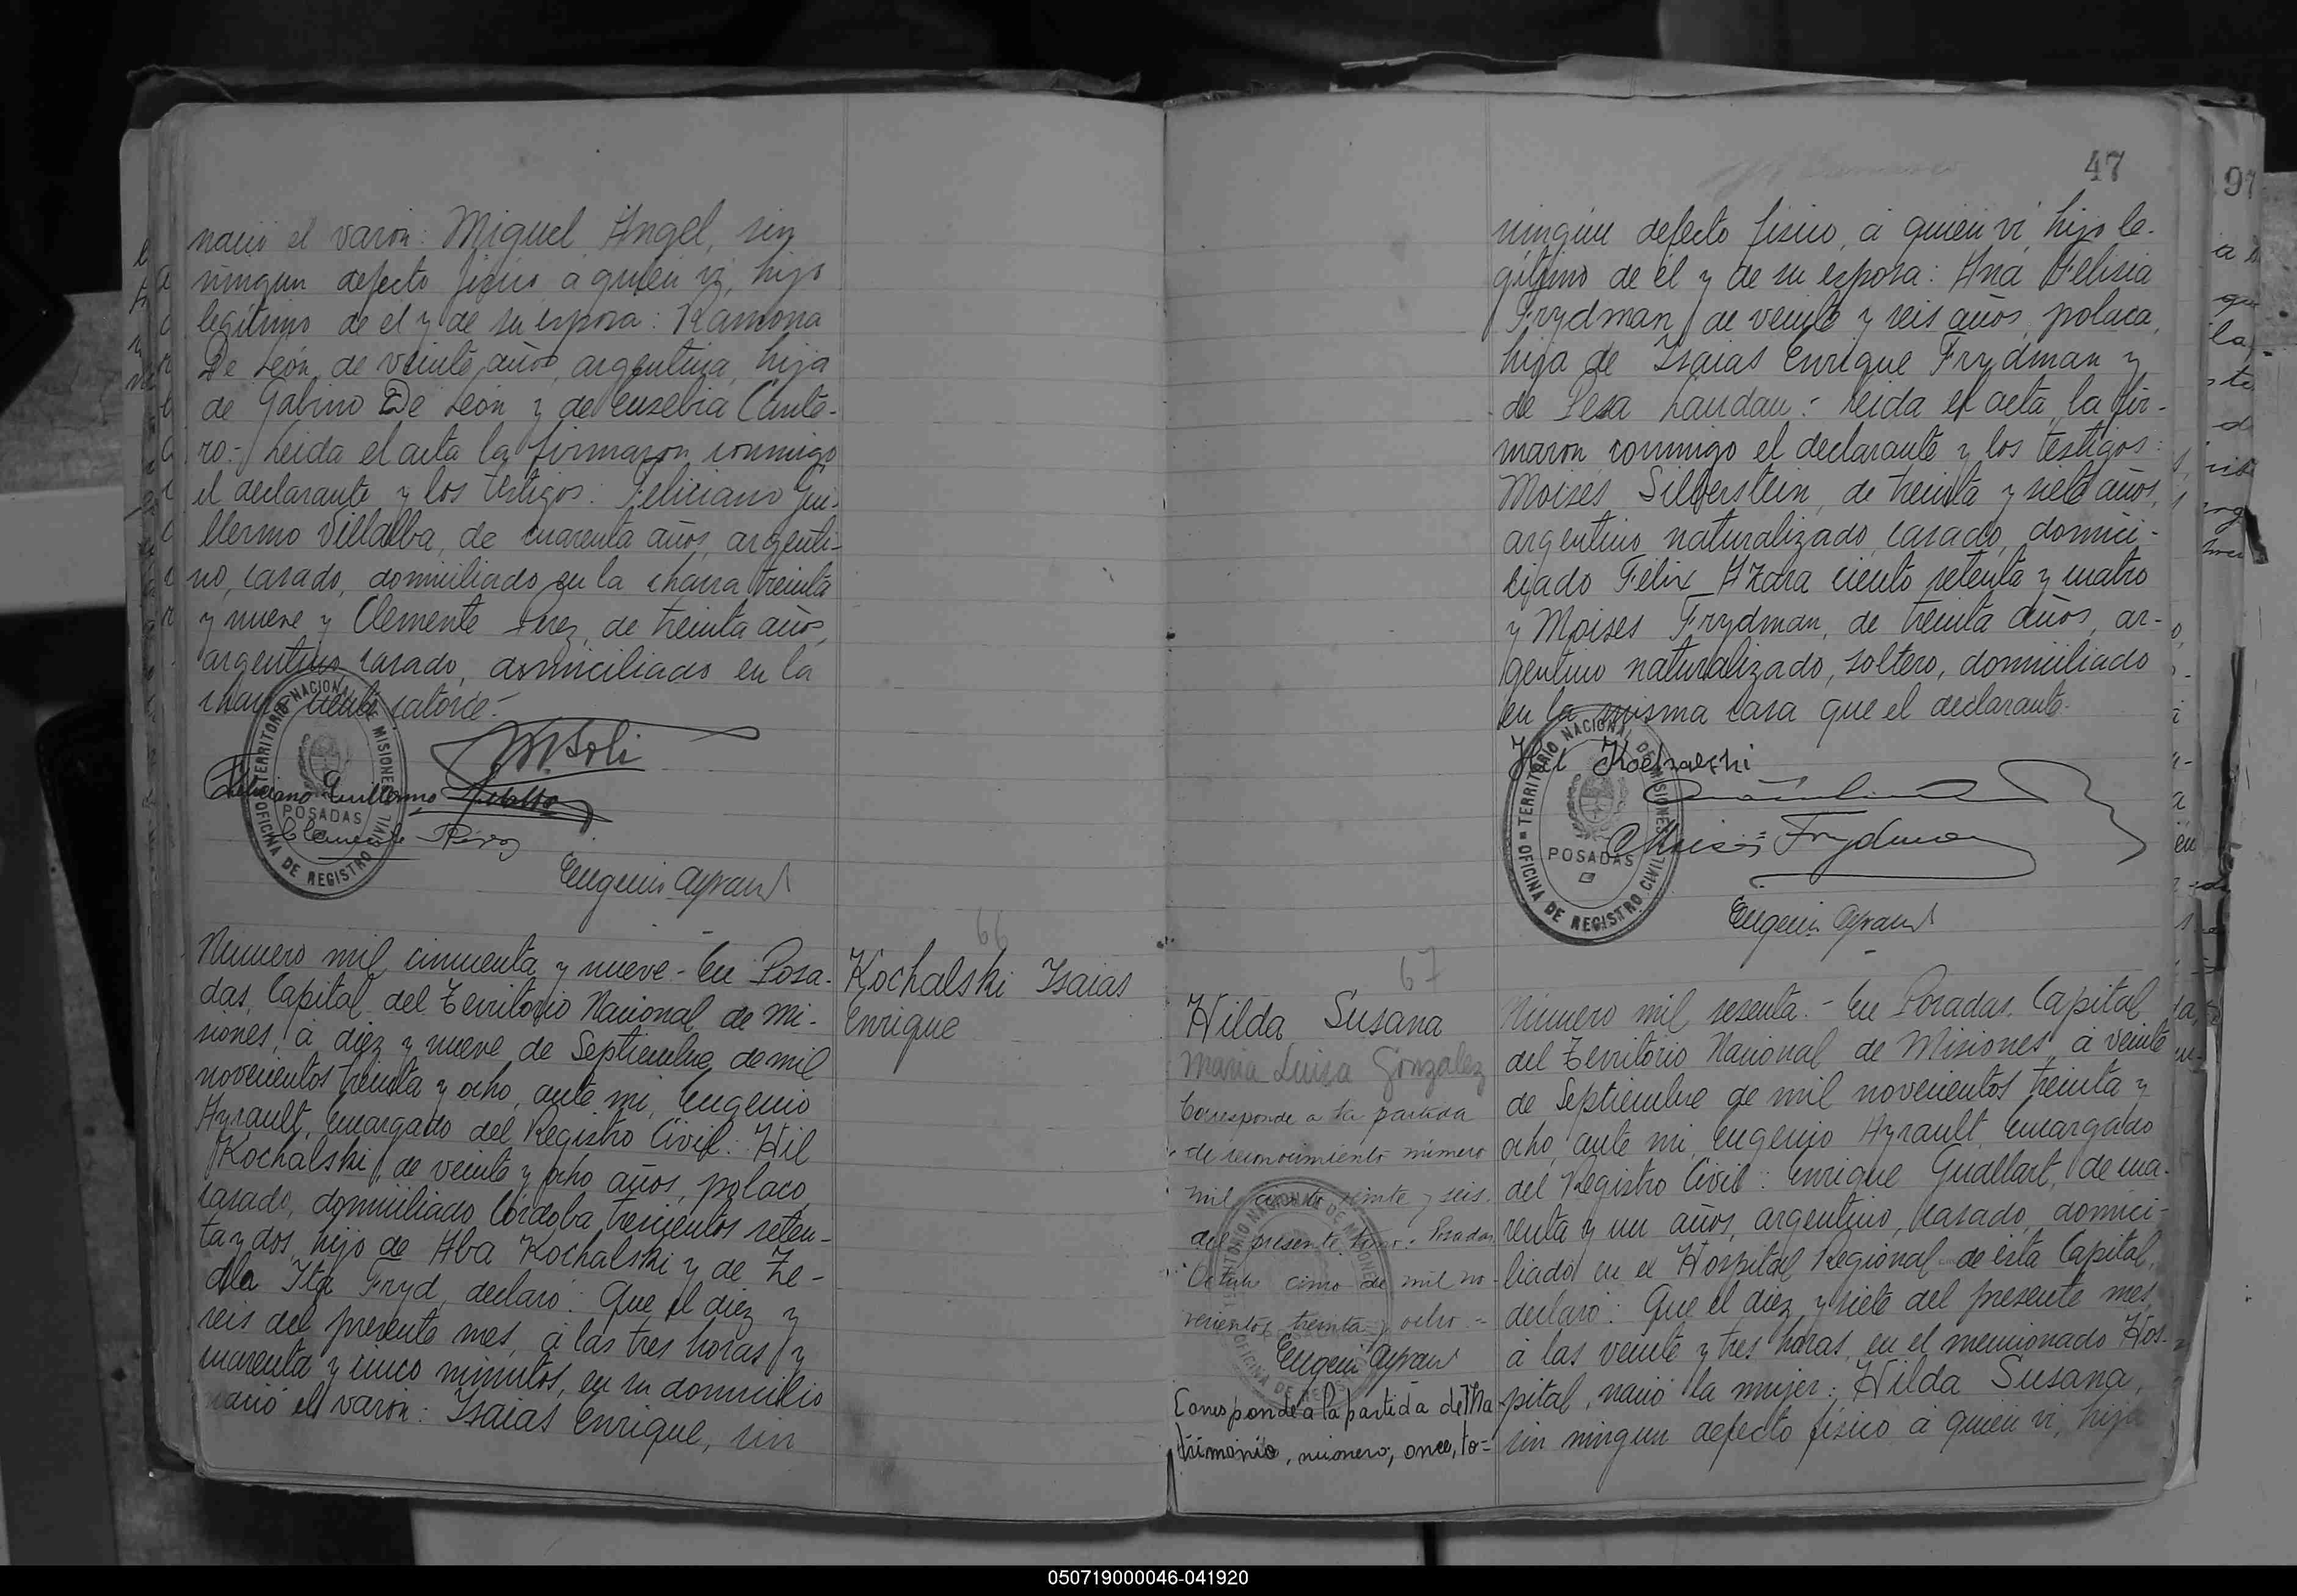 nació el varón: Miguel Angel, sin
ningun defecto fisico a quien vi, hijo
legítimo de el y de su esposa: Ramona
De León, de veinte años, argentina, hija
de Gabino De León y de Eusebia Cante-
ro.- Leida el acta la firmaron conmigo
el declarante y los testigos: Feliciano Gui-
llermo Villalba, de cuarenta años, argenti-
no, casado, domiciliado en la chacra treinta
y nueve y Clemente Perez, de treinta años,
argentino casado, domiciliado en la
chacra ciento catorce.-
TERRITORIO NACIONAL DE MISIONES
POSADAS
OFICINA DE REGISTRO CIVIL
Feliciano Guillermo
Clemente Perez
Eugenio Ayrault
66
Número mil cincuenta y nueve.- En Posa-
das, Capital del Territorio Nacional de Mi-
siones, à diez y nueve de Septiembre de mil
novecientos treinta y ocho, ante mi, Eugenio
Ayrault, Encargado del Registro Civil: Hil
Kochalski, de veinte y ocho años, polaco,
casado, domiciliado Córdoba trescientos seten-
ta y dos, hijo de Aba Kochalski y de Ze-
dla Ita Fryd, declaró: Que el diez y
seis del presente mes, à las tres horas y
cuarenta y cinco minutos, en su domicilio
nació el varón: Isaias Enrique, sin
Kochalski Isaias
Enrique
47
ningún defecto fisico, à quien vi, hijo le-
gítimo de él y de su esposa: Ana Felisia
Frydman, de veinte y seis años, polaca,
hija de Isaias Enrique Frydman y
de Pesa Landau.- Leida el acta, la fir-
maron conmigo el declarante y los testigos:
Moises Silberstein, de treinta y siete años,
argentino naturalizado, casado, domici-
liado Félix Azara ciento setenta y cuatro
y Moises Frydman, de treinta años, ar-
gentino naturalizado, soltero, domiciliado
en la misma casa que el declarante.
Hil Kochalski
TERRITORIO NACIONAL DE MISIONES
POSADAS
OFICINA DE REGISTRO CIVIL
Moisés Frydman
Eugenio Ayrault
67
Hilda Susana
Maria Luisa Gonzalez
Corresponde a la partida
de reconocimiento número
mil ciento veinte y seis.
del presente tomo.- Posadas
Octubre cinco de mil no-
vecientos treinta y ocho -
Eugenio Ayrault
Corresponde a la partida de Ma-
trimonio, número, once, to=
Número mil sesenta.- En Posadas, Capital
del Territorio Nacional de Misiones, à veinte
de Septiembre de mil novecientos treinta y
ocho, ante mi, Eugenio Ayrault, Encargado
del Registro Civil: Enrique Guallart, de cua-
renta y un años, argentino, casado, domici-
liado en el Hospital Regional de ésta Capital,
declaró: Que el diez y siete del presente mes
à las veinte y tres horas, en el mencionado Hos-
pital, nació la mujer: Hilda Susana,
sin ningun defecto fisico à quien vi, hija
97
050719000046-041920